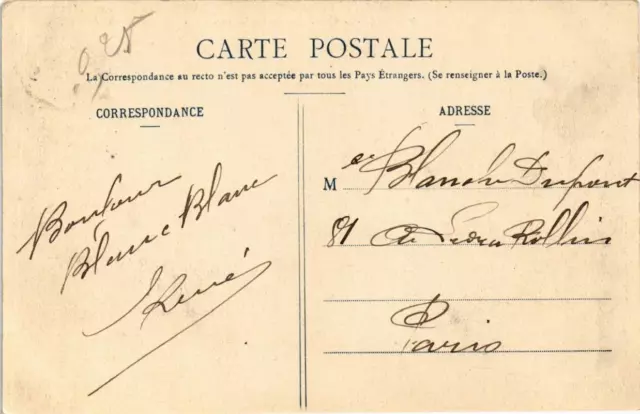 0,25
CARTE POSTALE
La Correspondance au recto n'est pas acceptée par tous les Pays Étrangers. (Se renseigner à la Poste.)
CORRESPONDANCE
Bonjour
Blanc Blanc
René
ADRESSE
M elle Blanche Dupont
81 Av Ledru Rollin
Paris